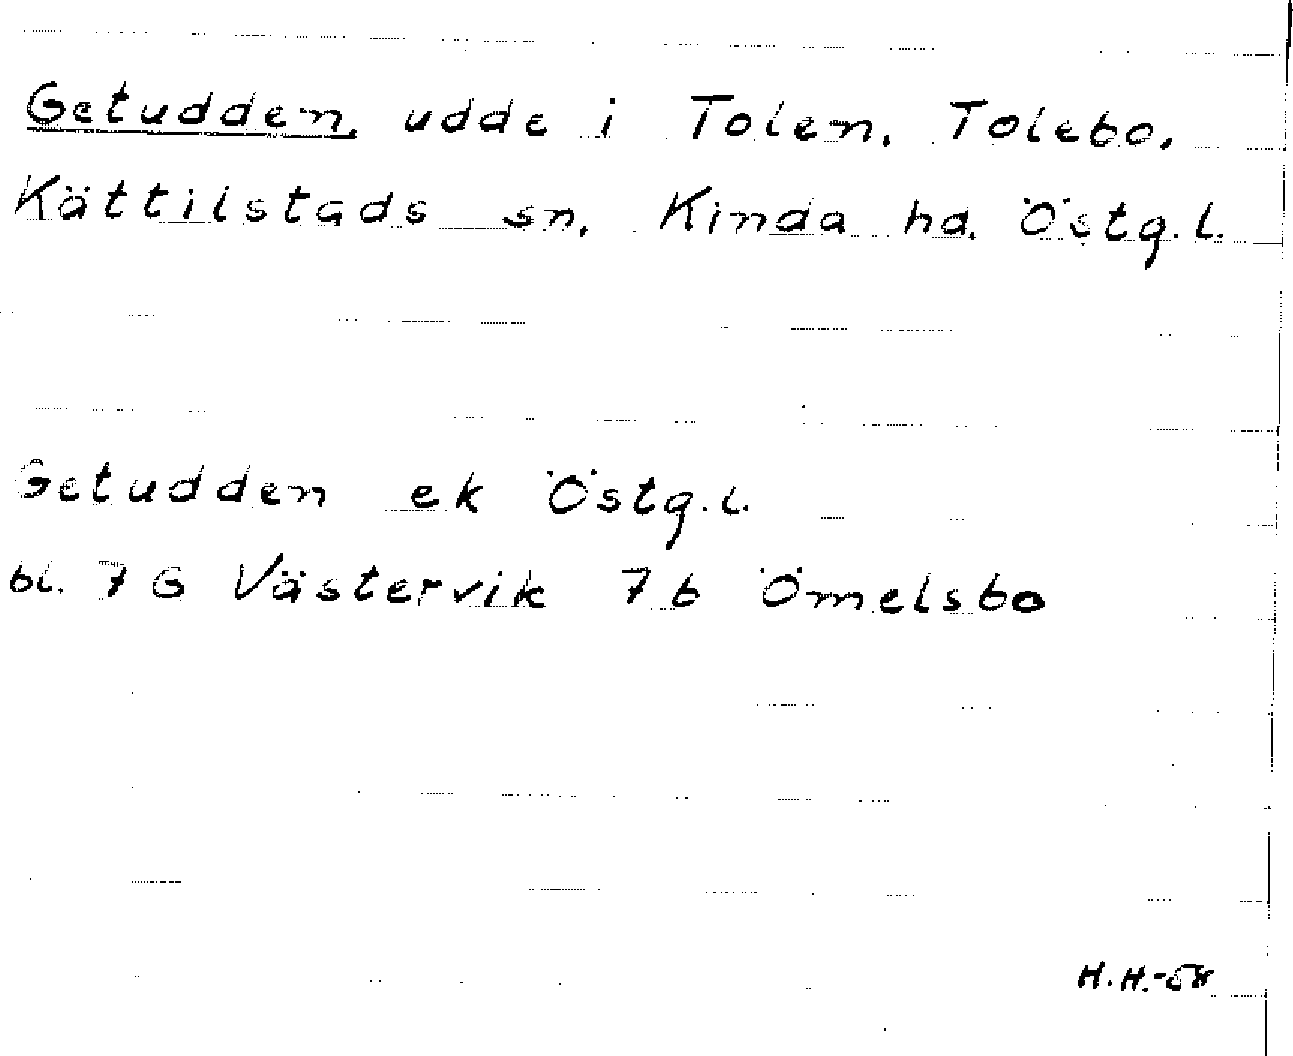 Getudden, udde i Tolen, Tolebo,
Kättilstads sn, Kinda hd. Östg.l.
Getudden ek Östg.l.
bl. 7 G Västervik 7 b Ömelsbo
H.H.-58